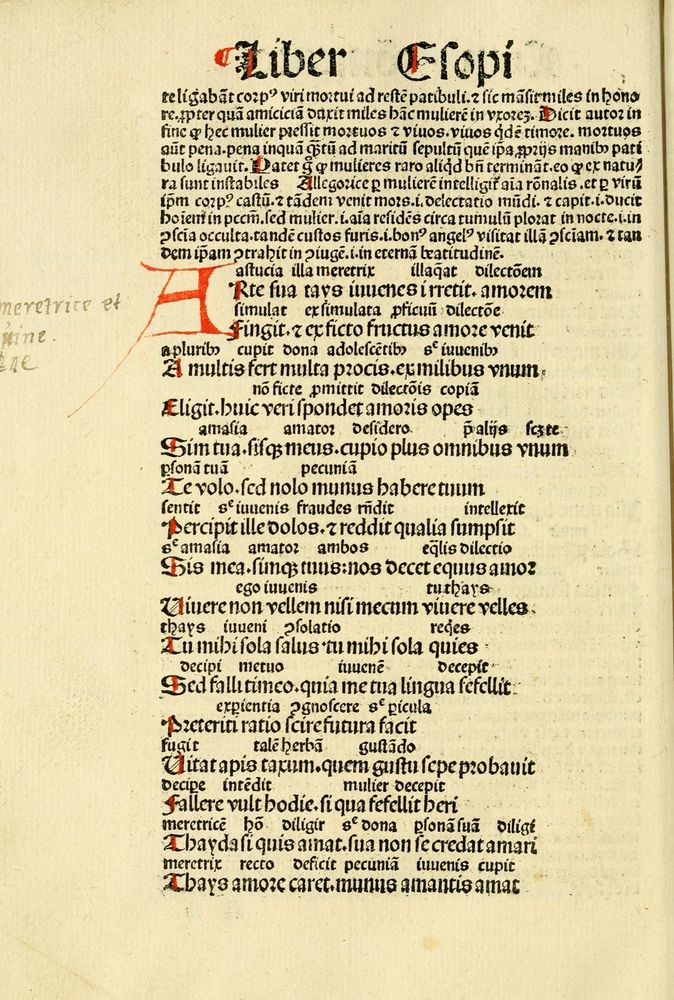 ¶Liber Esopi
te ligabāt corpꝰ viri mortui ad restē patibuli. ⁊ sic māsit miles in hono
re. ꝓpter quā amiciciā duxit miles hāc mulierē in vxoreꝫ. Dicit autor in
fine ꝙ hec mulier pressit mortuos ⁊ viuos. viuos qͥdē timore. mortuos
aūt pena. pena inquā qꝫtū ad maritū sepultū quē ip̄a ꝓprijs manibꝰ pati
bulo ligauit. Patet gͦ ꝙ mulieres raro aliqͥd bn̄ termināt. eo ꝙ ex natu
ra sunt instabiles Allegorice ꝑ mulierē intelligit̄ aīa rōnalis. et ꝑ virū
ip̄m corpꝰ castū. ⁊ tādem venit mors .i. delectatio mūdi. ⁊ capit .i. ducit
hoīem in pccm̄. sed mulier .i. aīa residēs circa tumulū plorat in nocte .i. in
ꝯscīa occulta. tandē custos furis .i. bonꝰ angelꝰ visitat illā ꝯscīam. ⁊ tan
dem ip̄am ꝯtrahit in ꝯiugē .i. in eternā beatitudinē.
astucia illa meretrix illaq̄at dilectōem
ARte sua tays iuuenes irretit. amorem
simulat ex simulata ꝓficuū dilectōe
Fingit. ⁊ ex ficto fructus amore venit
a pluribꝰ cupit dona adolescētibꝰ sͨ iuuenibꝰ
A multis fert multa procis. ex milibus vnum.
nō ficte ꝓmittit dilectōis copiā
Eligit. huic veri spondet amoris opes
amasia amator desidero p̄ alijs scꝫ te
Sim tua. sisqꝫ meus. cupio plus omnibus vnum
ꝑsonā tuā pecuniā
Te volo. sed nolo munus habere tuum
sentit sͨ iuuenis fraudes rn̄dit intellexit
Percipit ille dolos. ⁊ reddit qualia sumpsit
sͨ amasia amator ambos eq̄lis dilectio
Sis mea. simqꝫ tuus: nos decet equus amor
ego iuuenis tu thays
Uiuere non vellem nisi mecum viuere velles
thays iuueni ꝯsolatio reqͥes
Tu mihi sola salus. tu mihi sola quies
decipi metuo iuuenē decepit
Sed falli timeo. quia me tua lingua fefellit
exꝑientia ꝯgnoscere sͨ ꝑicula
Preteriti ratio scire futura facit
fugit talē herbā gustādo
Uitat apis taxum. quem gustu sepe probauit
decipe intēdit mulier decepit
Fallere vult hodie. si qua fefellit heri
meretricē hō diligit sͨ dona ꝑsonā suā diligi
Thayda si quis amat. sua non se credat amari
meretrix recto deficit pecuniā iuuenis cupit
Thays amore caret. munus amantis amat
meretrice et